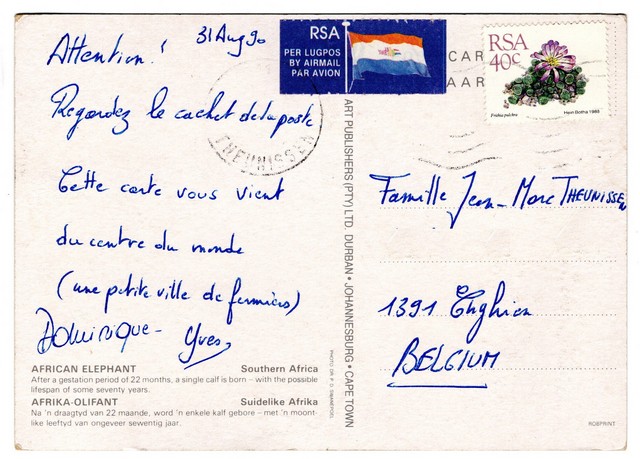 Attention!
31 Aug 90
Regardez le cachet de la poste
Cette carte vous vient
du centre du monde
(une petite ville de fermiers)
Dominique - Yves
AFRICAN ELEPHANT Southern Africa
After a gestation period of 22 months, a single calf is born – with the possible
lifespan of some seventy years.
AFRIKA-OLIFANT Suidelike Afrika
Na 'n draagtyd van 22 maande, word 'n enkele kalf gebore – met 'n moont-
like leeftyd van ongeveer sewentig jaar.
ART PUBLISHERS (PTY) LTD. DURBAN • JOHANNESBURG • CAPE TOWN
RSA
PER LUGPOS
BY AIRMAIL
PAR AVION
THEUNISSEN
CAR
AAR
RSA
40c
Frithia pulchra
Hein Botha 1988
Famille Jean-Marc THEUNISSEN
1391 Enghien
BELGIUM
ROBPRINT